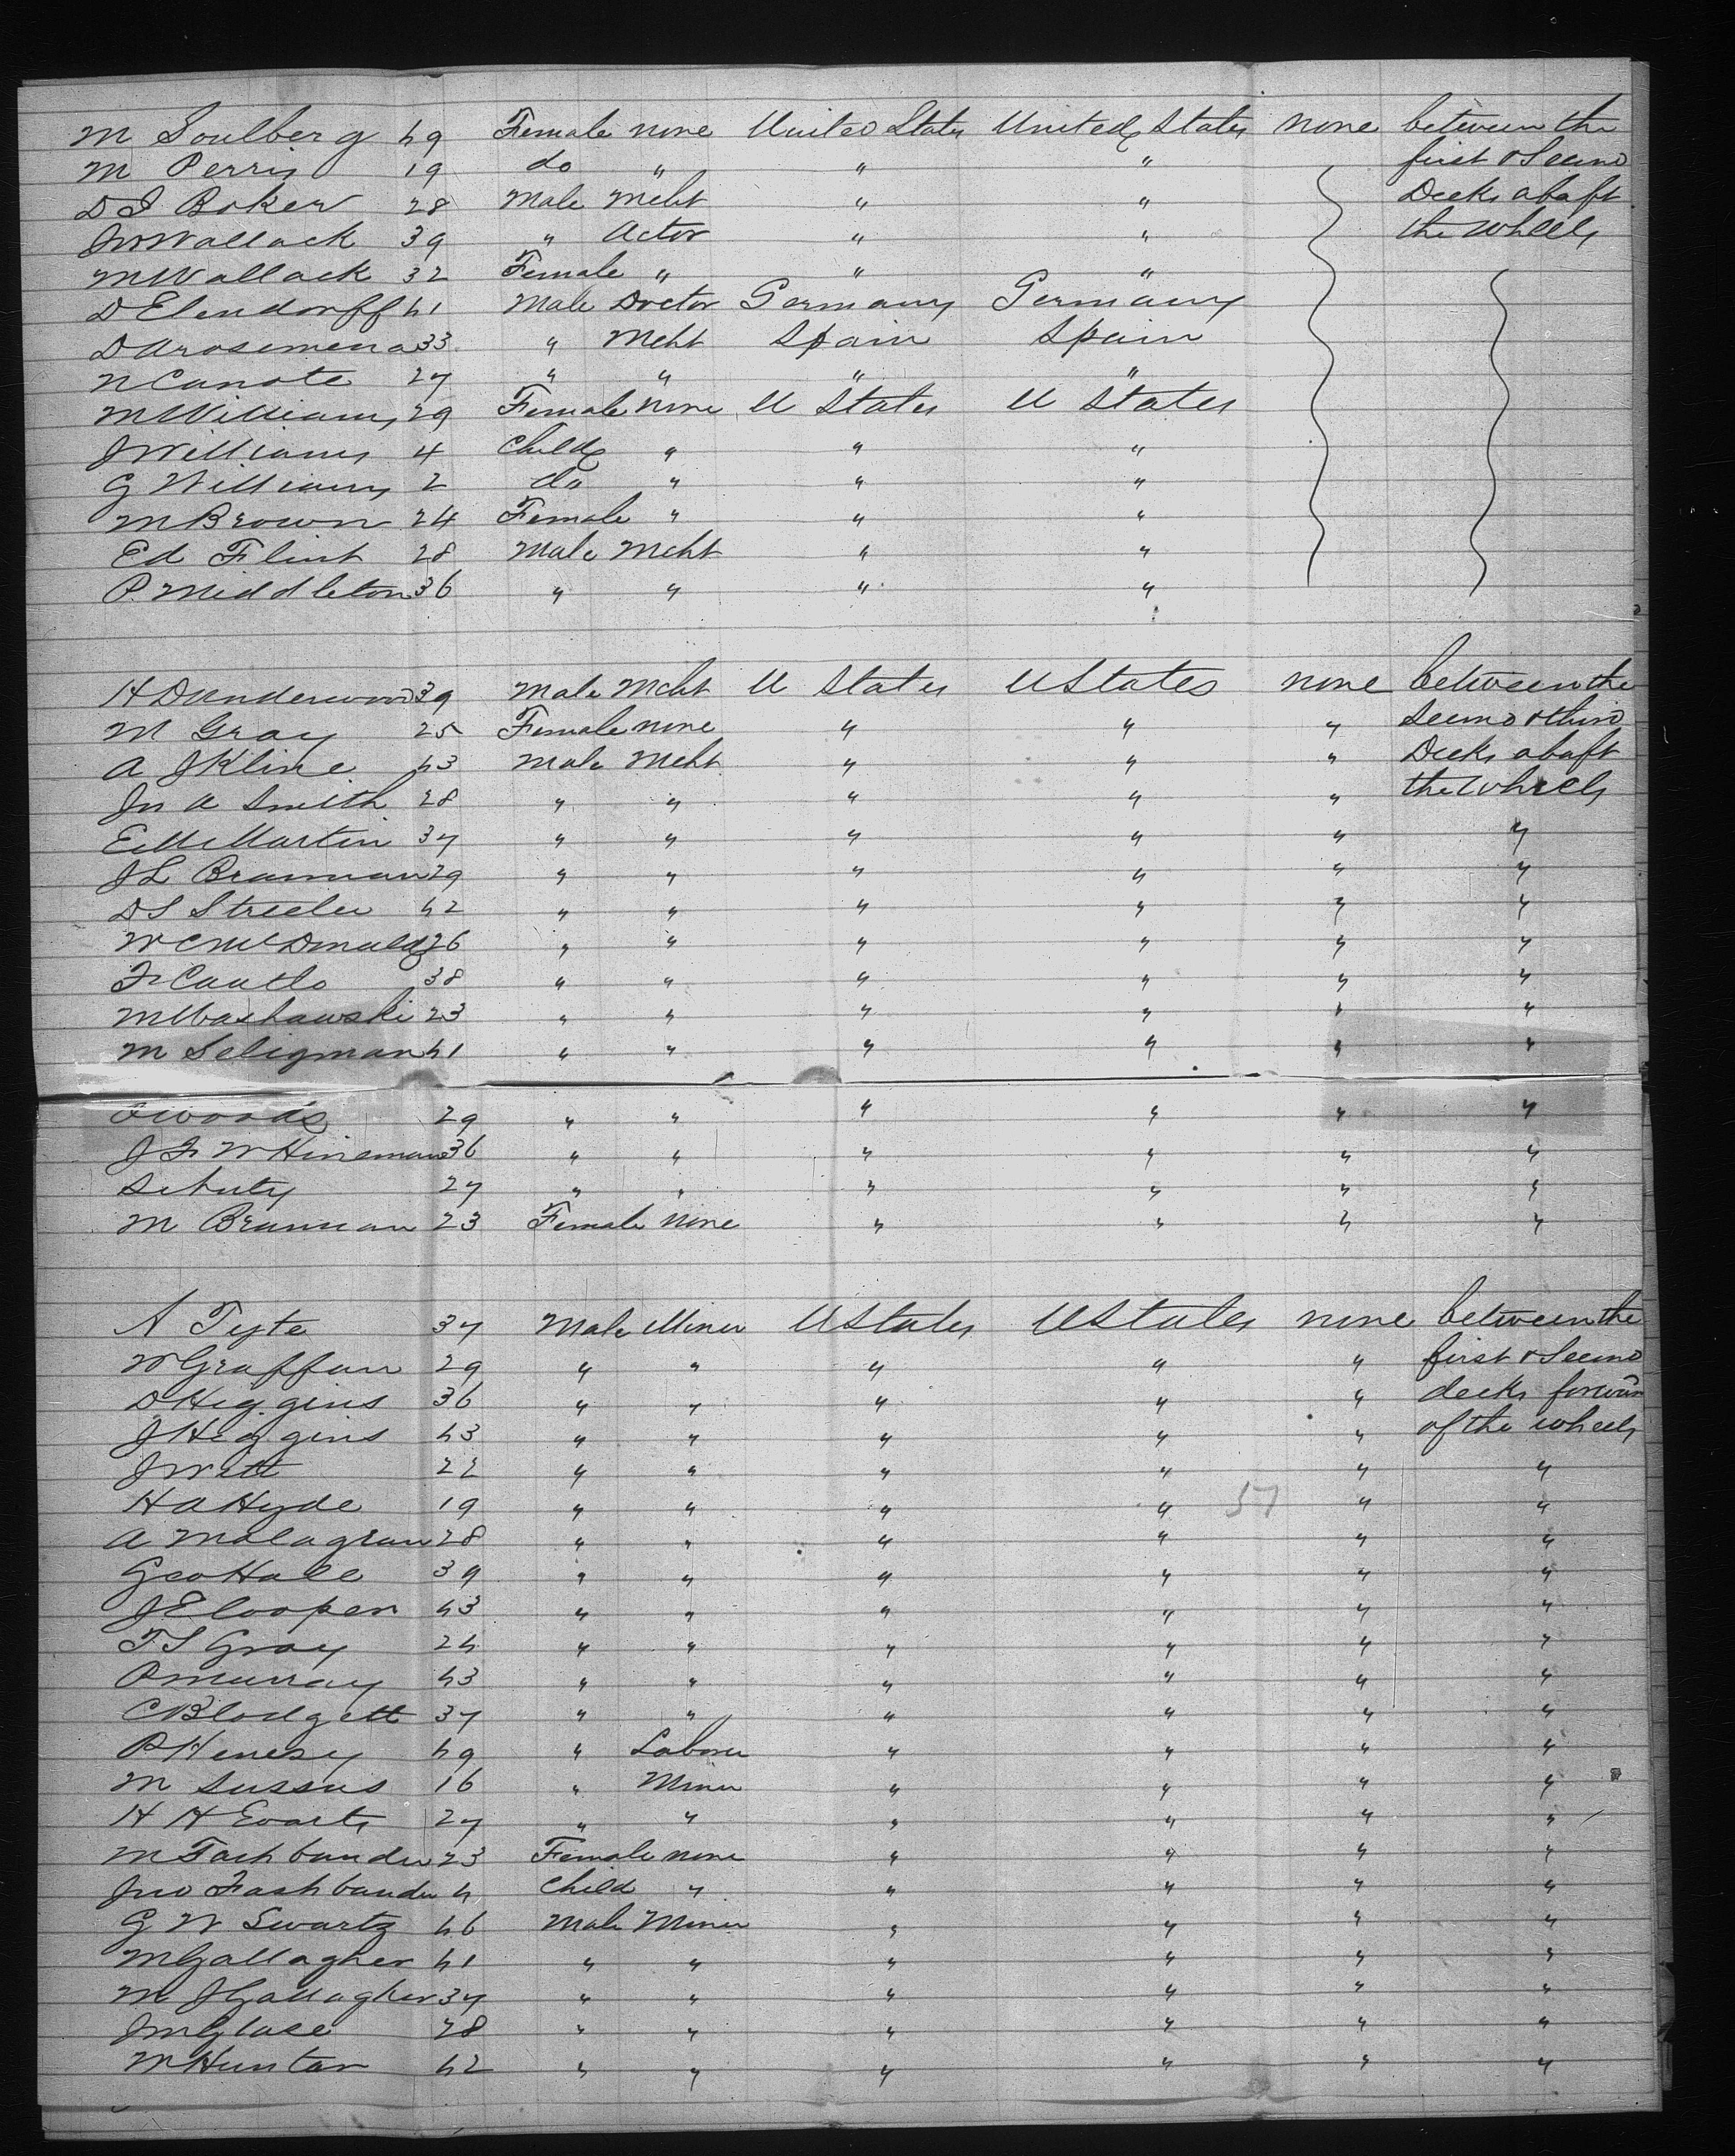 M Soulberg 49 Female none United States United States none between the
M Perris 19 do " " " first & Second
D I Boker 28 Male Mcht " " Decks abaft
Jn Wallack 39 " Actor " " the wheels
M Wallack 32 Female " " "
D Elendorff 41 Male Doctor Germany Germany
D Arosemena 33 " Mcht Spain Spain
N Canote 27 " " " "
M Williams 29 Female none U States U States
J Williams 4 Child " " "
G Williams 2 do " " "
M Brown 24 Female " " "
Ed Flint 28 Male Mcht " "
P. Middleton 36 " " " "
H D Underwood 39 Male Mcht U States U States none between the
M Gray 25 Female none " " " Second & third
A J Kline 43 Male Mcht " " " Decks abaft
Jn A Smith 28 " " " " " the wheels
E McMartin 37 " " " " " "
J L Brannan 29 " " " " " "
D S Streeler 42 " " " " " "
W C McDonald 26 " " " " " "
Fr Cautlo 38 " " " " " "
M Washawski 23 " " " " " "
M Seligman 41 " " " " " "
Woods 29 " " " " " "
J Fr W Hineman 36 " " " " " "
Schuty 27 " " " " " "
M Brannan 23 Female none " " " "
A Tyte 37 Male Miner U States U States none between the
W Graffan 29 " " " " " first & Second
D Higgins 36 " " " " " decks forward
J Higgins 43 " " " " " of the wheels
J Witt 22 " " " " " "
H A Hyde 19 " " " " " "
57
A Malagran 28 " " " " " "
Geo Hall 39 " " " " " "
J E Cooper 43 " " " " " "
T S Gray 24 " " " " " "
P Murray 43 " " " " " "
C Blodgett 37 " " " " " "
P Henesy 49 " Laborer " " " "
M Sussus 16 " Miner " " " "
H H Evarts 27 " " " " " "
M Fashbander 23 Female none " " " "
Jno Fashbander 4 Child " " " " "
G W Swartz 46 Male Miner " " " "
M Gallagher 41 " " " " " "
M J Gallagher 37 " " " " " "
Jn Glase 28 " " " " " "
M Huntar 42 " " " " " "